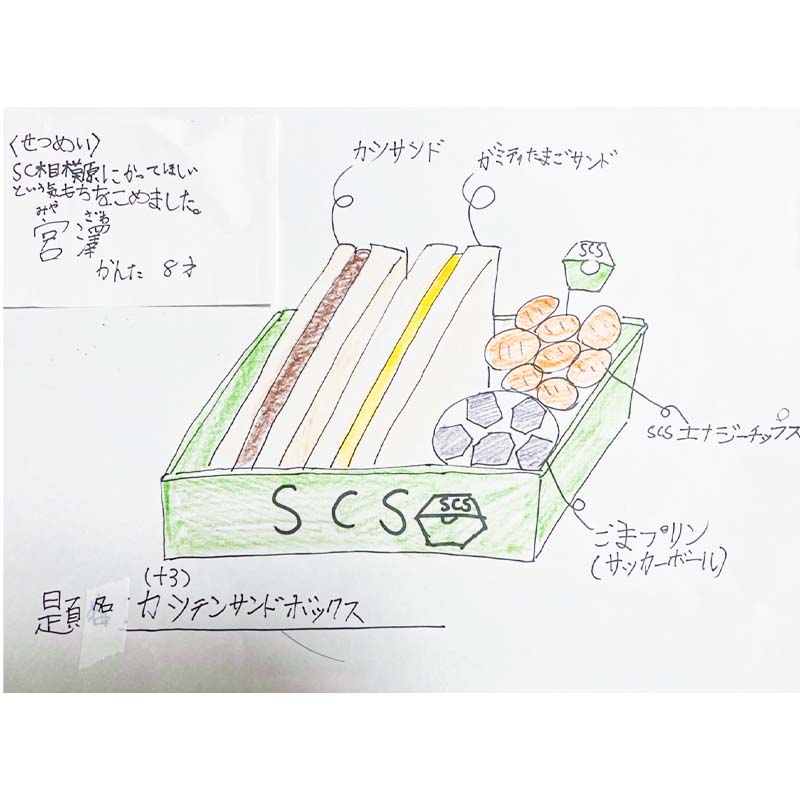 〈せつめい〉
SC相模原にかってほしい
という気もちをこめました。
みや ざわ
宮澤
かんた 8才
カツサンド
ガミティたまごサンド
SCS
SCSエナジーチップス
SCS SCS
ごまプリン
(サッカーボール)
(+3)
題名:カツテンサンドボックス